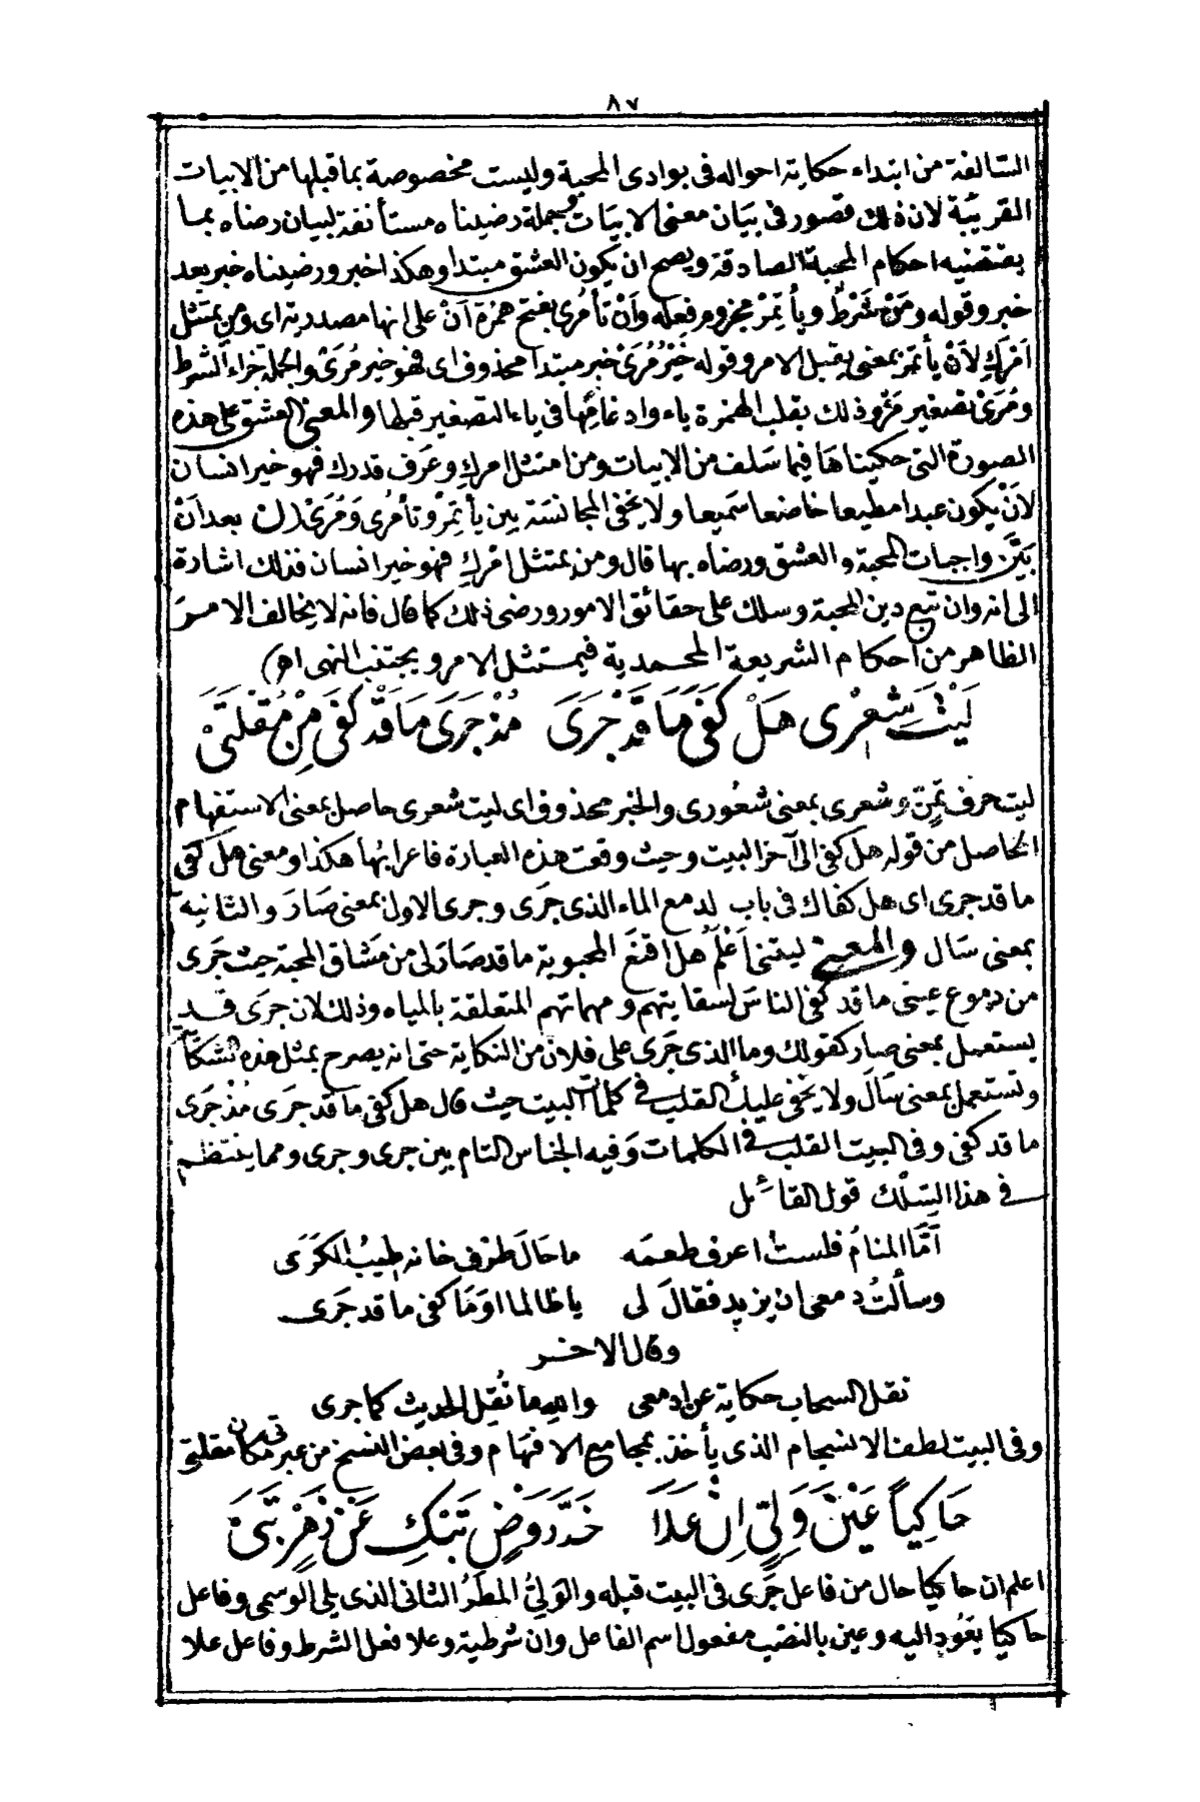 ٨٧
السالفة من ابتداء حكاية احواله فى بوادى المحبة وليست مخصوصة بما قبلها من الابيات
القريبة لان ذلك قصور فى بيان معنى الابيات وجملة رضيناه مستأنفة لبيان رضاه بما
يقتضيه احكام المحبة الصادقة ويصح ان يكون العشق مبتدا وهكذا خبر ورضيناه خبر بعد
خبر وقوله ومَنْ شَرْطٌ ويأتَمِرْ مجزوم فعله وأنْ تأمُرى بفتح همزة أنْ على انها مصدرية اى ومن يمتثل
اَمْرَكِ لاَنْ يأتمر بمعنى يقبل الامر وقوله خَيْرُ مُرَىْ خبر مبتدا محذوف اى فهو خير مُرَىْ والجملة جزاء الشرط
ومُرَىْ تصغير مَرْءٍ وذلك بقلب الهمزة ياء وادغامِها فى ياء التصغير قبلها والمعنى العشق على هذه
الصورة التى حكيناهَا فيما سَلف من الابيات ومن امتثل امركِ وعَرَف قدرك فهو خير انسان
لاَنْ يكون عبدا مطيعا خاضعا سَميعا ولا يخفى المجانسَة بين يأتَمِرْ وتأمُرى وَمُرَىْ (ن بعد أنْ
بَيَّن واجبات المحبة والعشق ورضاه بها قال ومن يمتثل امركِ فهو خير انسان فذلك اشارة
الى انه وان تَبع دين المحبة وسلك على حقائق الامور ورضى ذلك كما قال فانه لا يخالف الامرَ
الظاهر من أحكام الشريعة المحمدية فيمتثل الامر ويجتنب النهى اھ)
لَيْتَ شِعْرِى هَلْ كَفَى مَا قَدْ جَرَى مُذْ جَرَى مَا قَدْ كَفَى مِنْ مُقْلَتَىْ
ليت حرف تمنّ وشعرى بمعنى شعُورى والخبر محذوف اى ليت شعرى حاصل بمعنى الاستفهام
الحاصل من قوله هل كفى الى آخر البيت وحيث وقعت هذه العبارة فاعرابُها هكذا ومعنى هل كفى
ما قد جرى اى هل كفاك فى باب الدمع الماء الذى جَرَى وجرى الاول بمعنى صَارَ والثانية
بمعنى سَال والمعنى ليتنى أعْلَمُ هل اقنعَ المحبوبة ما قد صَارَ لى من مَشاق المحبة حيث جَرَى
من دموع عينى ما قد كفى الناسَ لسقايتهم ومهماتهم المتعلقة بالمياه وذلك لان جرَى قد
يستعمل بمعنى صار كقولك وما الذى جَرَى على فلان من النكاية حتى انه يصرح بمثل هذه الشكاية
وتستعمل بمعنى سَالَ ولا يخفى عليك القلب فى كلمات البيت حيث قال هل كفى ما قد جَرَى مُذْ جَرَى
ما قد كفى وفى البيت القلب فى الكلمات وَفيه الجناس التام بين جرى وجرى ومما ينتظم
فى هذا السِّلْك قول القائل
أمَّا المنامُ فلستُ اعرف طعمَه ما حَالَ طرْفٍ خانه طيبُ الكَرَى
وسألتُ دمعى ان يزيد فقالَ لى يا ظالما اوَمَا كفى ما قد جَرَى
وقال الاخر
نقل السحاب حكاية عن ادمعى والله ما نُقِل الحديث كما جرى
وفى البيت لطف الانسجام الذى يأخذ بمجامع الافهَام وفى بعض النسخ من عبرتى مكان مقلتى
حَاكِياً عَيْنَ وَلِىٍّ اِنْ عَلاَ خَدَّ رَوْضٍ تَبْكِ عَنْ زَهْرٍ تُبَىْ
اعلم ان حاكيًا حال من فاعل جَرَى فى البيت قبله والوَلِىُّ المطَرُ الثانى الذى يلى الوسمى وفاعل
حاكيا يَعُود اليه وعين بالنصْب مفعول اسم الفاعل وان شرطية وعلا فعل الشرط وفاعل علا